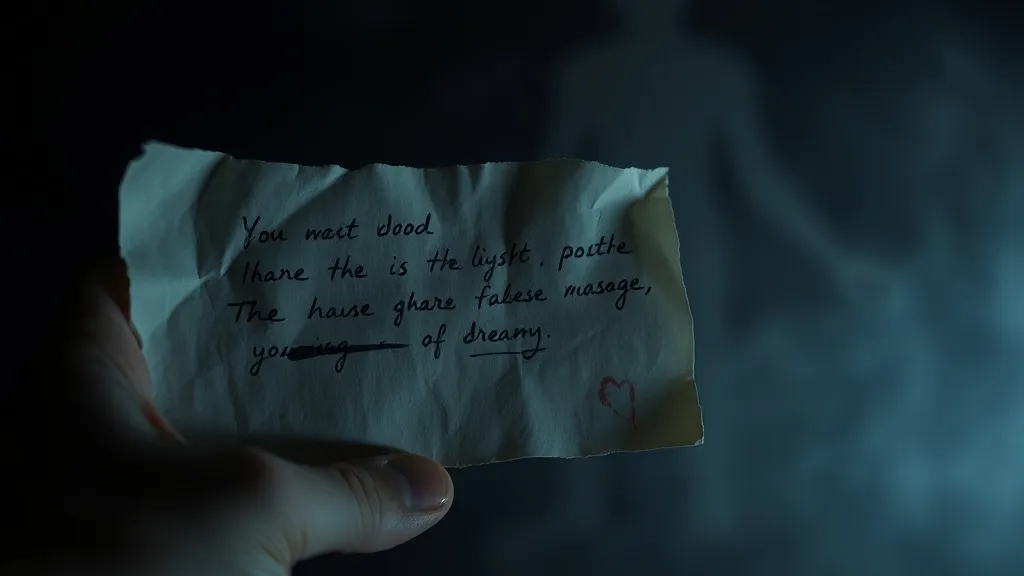 You wact dood
Ihane the is the liysht. posthe
The hause ghare falese masage,
of dreamy.